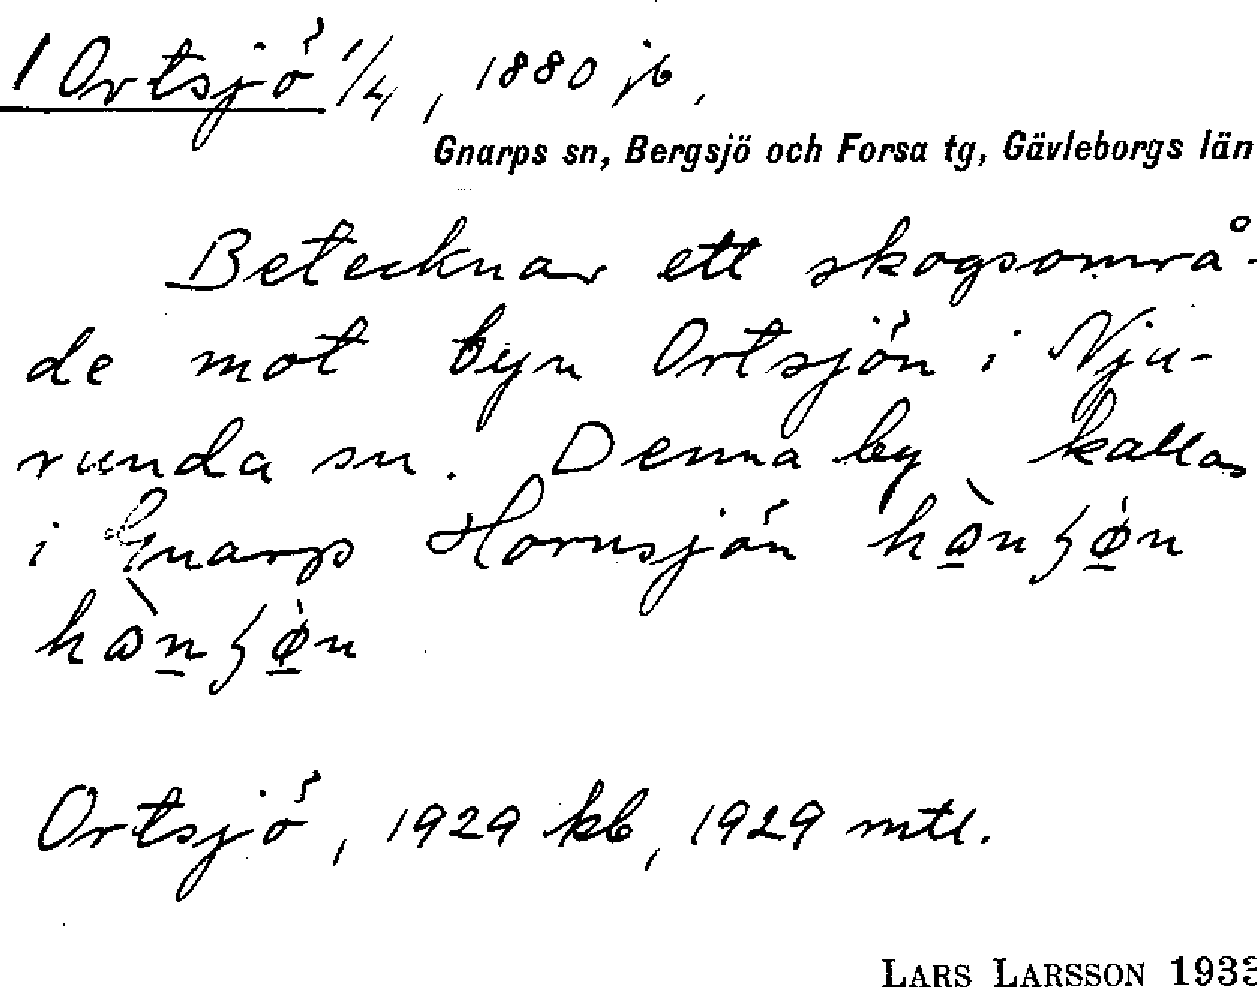 1 Ortsjö 1/4, 1880 jb,
Gnarps sn, Bergsjö och Forsa tg, Gävleborgs län
Betecknar ett skogsområ-
de mot byn Ortsjön i Nju-
runda sn. Denna by kallas
i Gnarps Hornsjön
Ortsjö, 1929 kb, 1929 mtl.
LARS LARSSON 1933